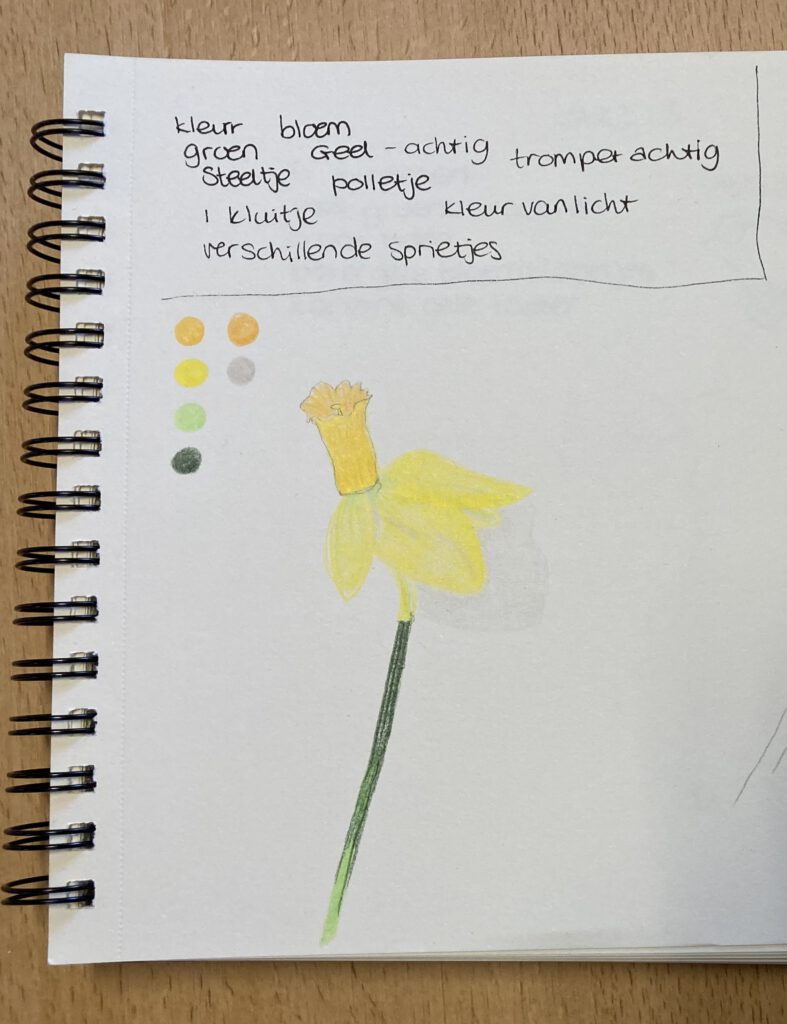 kleur bloem
groen Geel - achtig trompet achtig
Steeltje polletje
1 kluitje kleur van licht
verschillende sprietjes